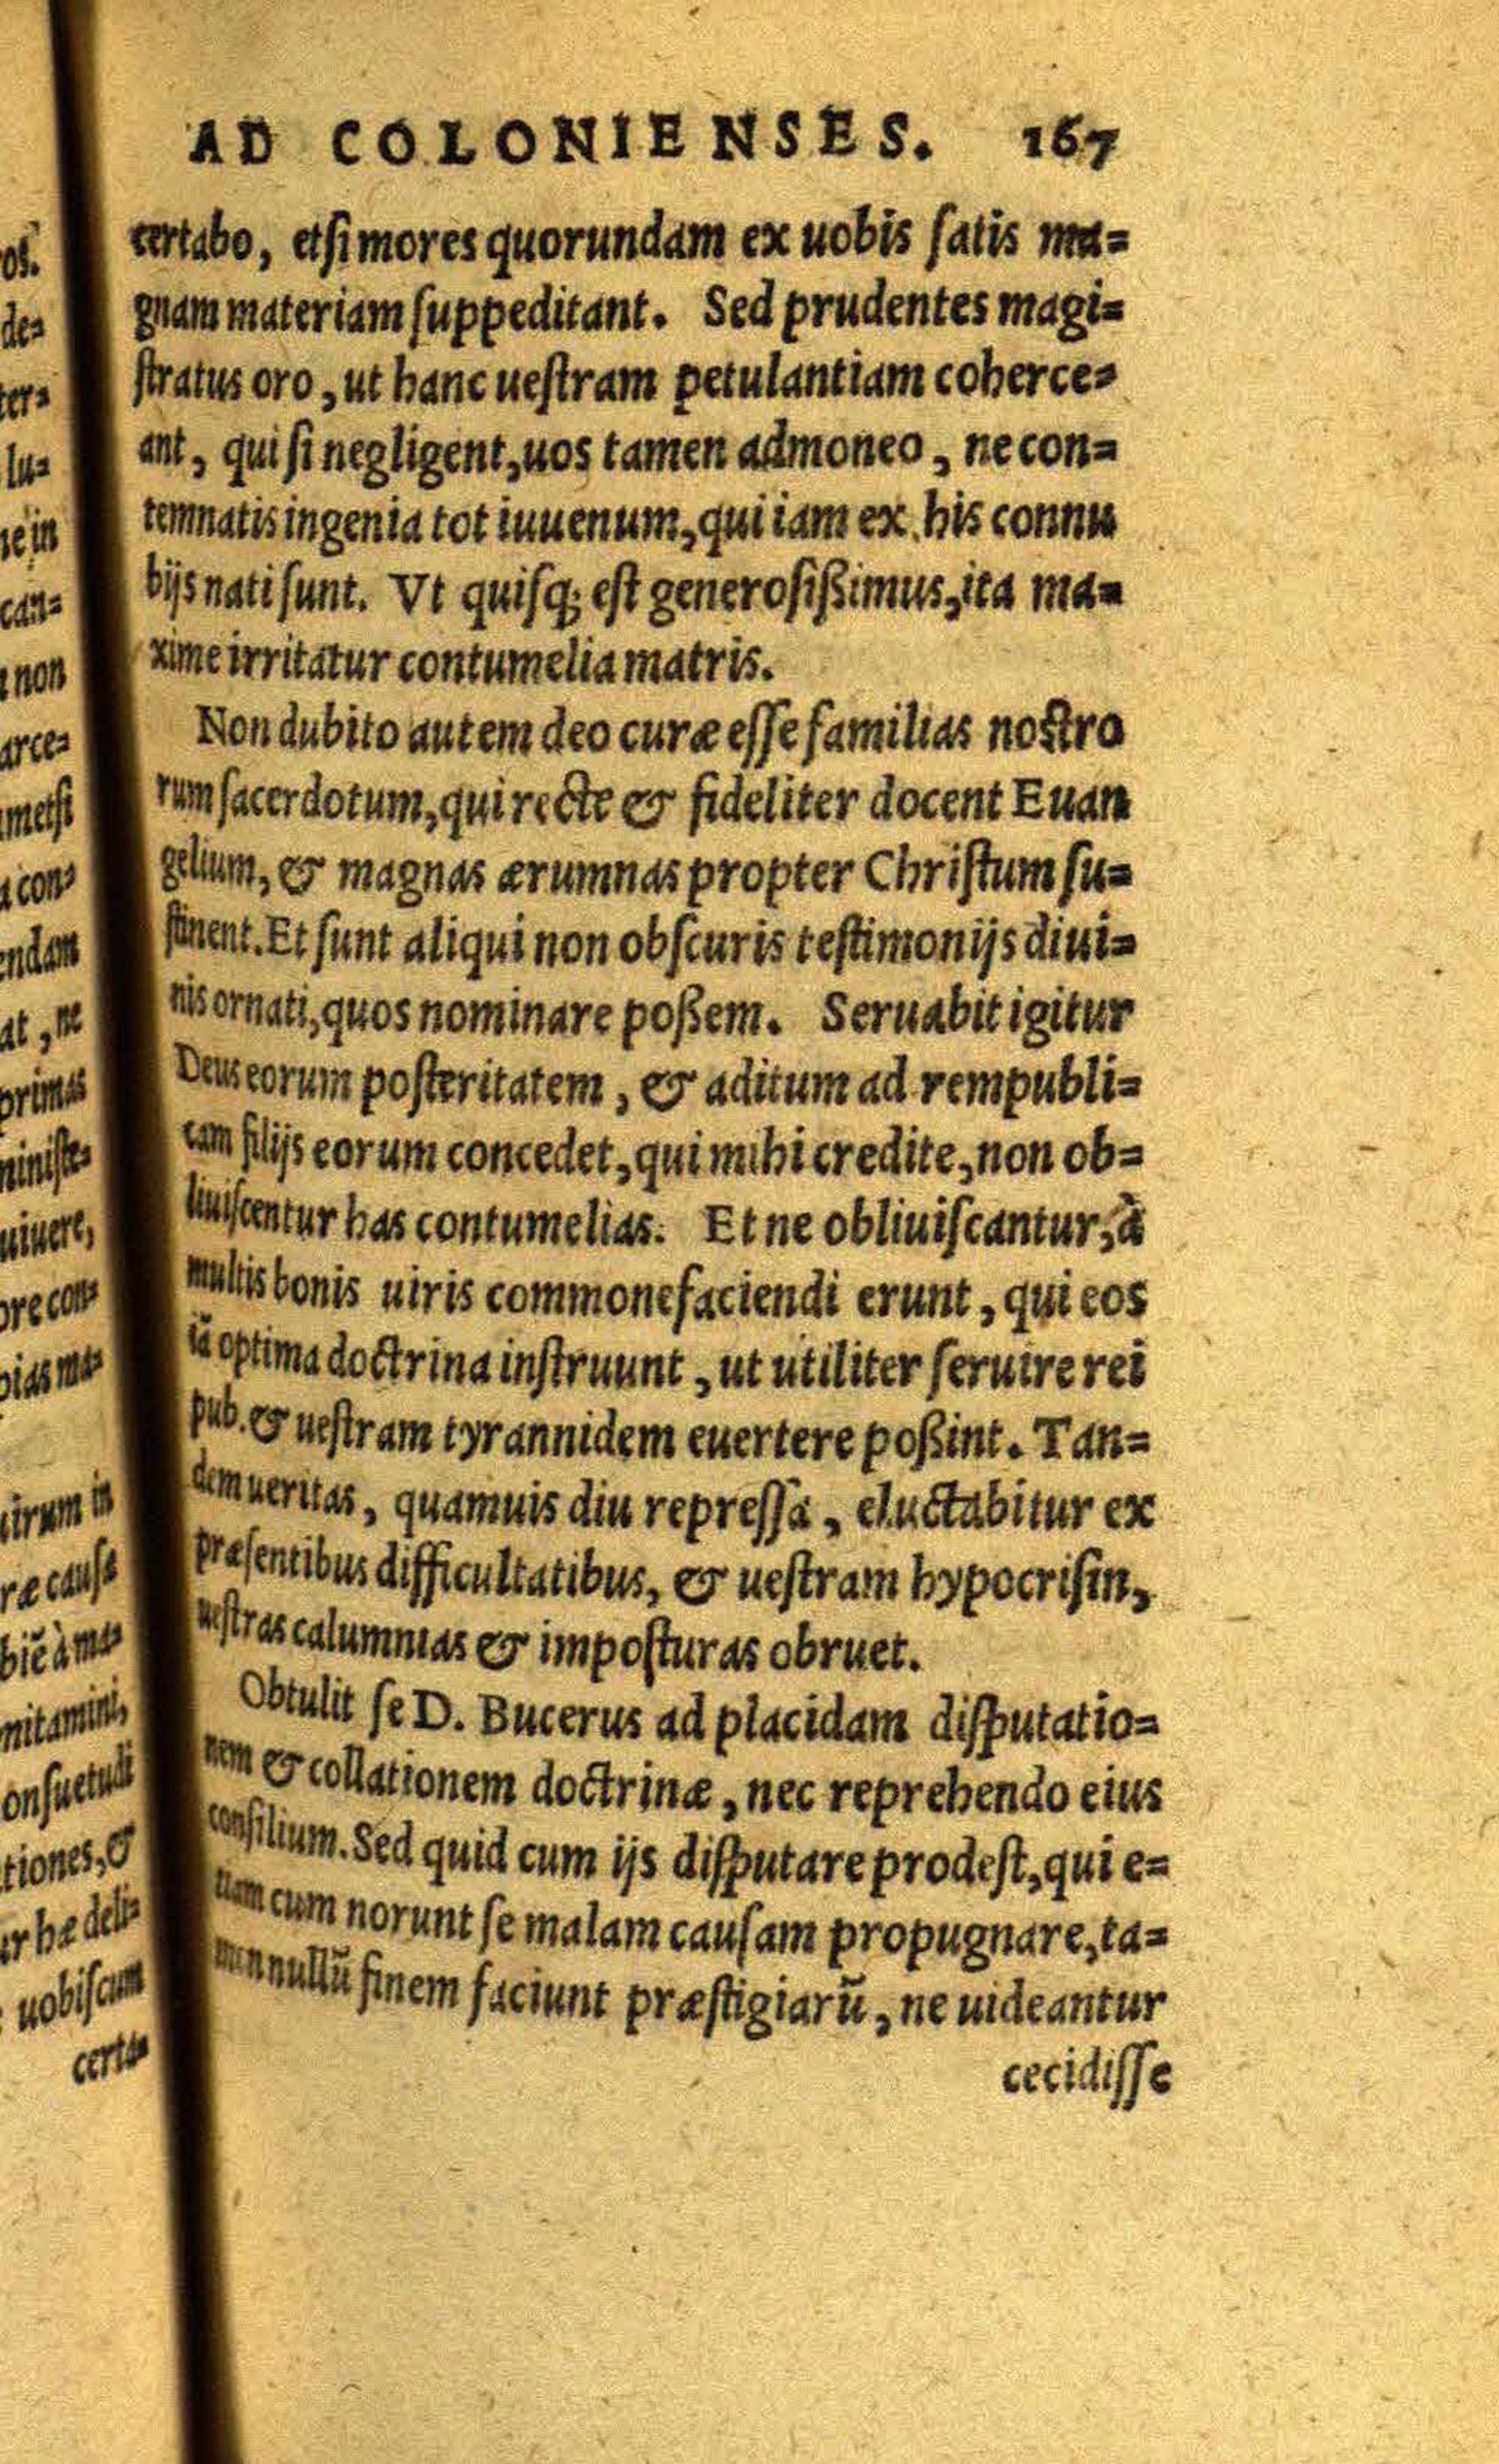 AD COLONIENSES. 167
certabo, etſi mores quorundam ex uobis ſatis ma=
gnam materiam ſuppeditant. Sed prudentes magi=
ſtratus oro, ut hanc ueſtram petulantiam coherce=
ant, qui ſi negligent, uos tamen admoneo, ne con=
temnatis ingenia tot iuuenum, qui iam ex his connu
bijs nati ſunt. Vt quiſq; eſt generoſißimus, ita ma=
xime irritatur contumelia matris.
Non dubito autem deo curæ eſſe familias noſtro
rum ſacerdotum, qui recte & fideliter docent Euan
gelium, & magnas ærumnas propter Chriſtum ſu=
ſtinent. Et ſunt aliqui non obſcuris teſtimonijs diui=
nis ornati, quos nominare poßem. Seruabit igitur
Deus eorum poſteritatem, & aditum ad rempubli=
cam filijs eorum concedet, qui mihi credite, non ob=
liuiſcentur has contumelias. Et ne obliuiſcantur, à
multis bonis uiris commonefaciendi erunt, qui eos
iã optima doctrina inſtruunt, ut utiliter ſeruire rei
pub. & ueſtram tyrannidem euertere poßint. Tan=
dem ueritas, quamuis diu repreſſa, eluctabitur ex
præſentibus difficultatibus, & ueſtram hypocriſin,
ueſtras calumnias & impoſturas obruet.
Obtulit ſe D. Bucerus ad placidam diſputatio=
nem & collationem doctrinæ, nec reprehendo eius
conſilium. Sed quid cum ijs diſputare prodeſt, qui e=
tiam cum norunt ſe malam cauſam propugnare, ta=
men nullũ finem faciunt præſtigiarũ, ne uideantur
cecidiſſe
os.
de=
ter=
lu=
ne in
can=
non
arce=
metſi
con=
endam
at, ne
primas
miniſte=
uiuere,
ore con=
pias ma=
uirum in
ræ cauſa
biẽ à ma=
nitamini,
onſuetudi
tiones, &
ur hæ deli=
uobiſcum
certa=